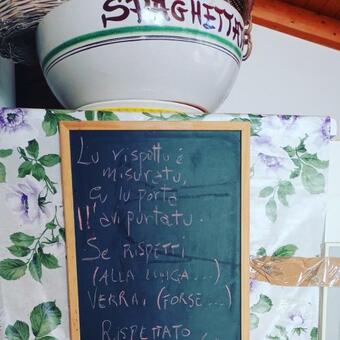 SPAGHETTAT
Lu rispettu é
misuratu,
cu lu porta
l'avi purtatu.
SE RISPETTI
(ALLA LUNGA...)
VERRAI (FORSE...)
RISPETTATO